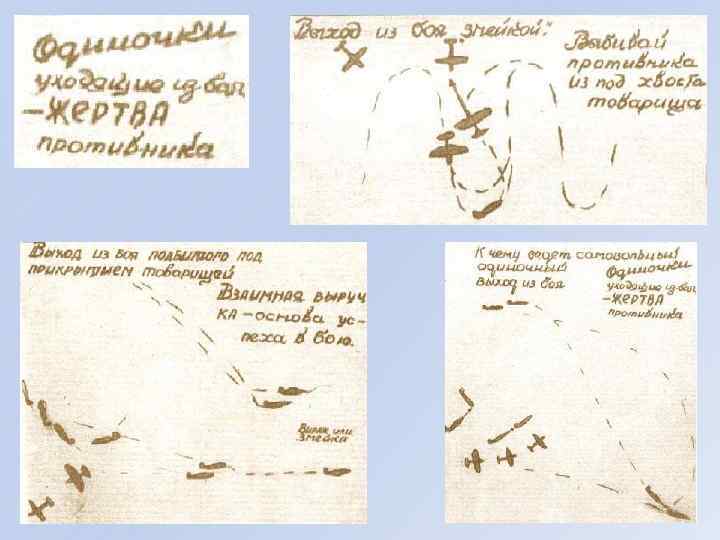 Одиночки
уходящие из боя
–ЖЕРТВА
противника
Выход из боя змейкой."
Выбивай
противника
из под хвоста
товарища
Выход из боя подбитого под
прикрытием товарищей
Взаимная выруч
ка – основа ус-
пеха в бою.
Вираж или
змейка
К чему ведет самовольный
одиночный
выход из боя
Одиночки
уходящие из боя
–ЖЕРТВА
противника